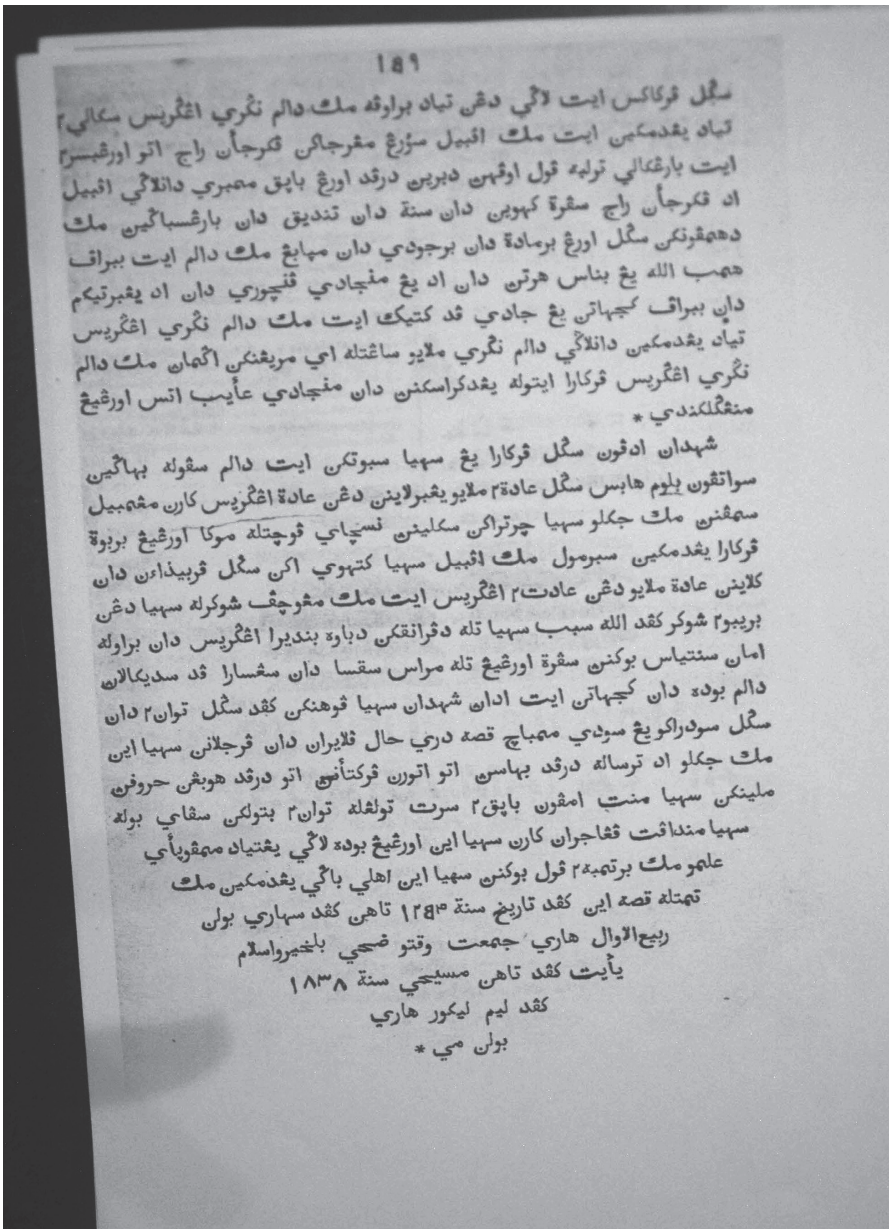 ١٥٩
سڬل ڤركاكس ايت لاڬي دڠن تياد براوڤه مك دالم نڬري اڠڬريس سكالي٢
تياد يڠدمكين ايت مك اڤبيل سؤرڠ مڠرجاكن ڤكرجأن راج اتو اورڠبسر٢
ايت بارڠكالي توليه ڤول اوڤهن دبرين درڤد اورڠ باڽق ممبري دانلاڬي اڤبيل
اد ڤكرجأن راج سڤرة كهوين دان سنة دان تنديق دان بارڠسباڬين مك
دهمڤونكن سڬل اورڠ برمادة دان برجودي دان مڽابڠ مك دالم ايت ببراڤ
همب الله يڠ بناس هرتن دان اد يڠ منجادي ڤنچوري دان اد يڠبرتيكم
دان ببراڤ كجهاتن يڠ جادي ڤد كتيك ايت مك دالم نڬري اڠڬريس
تياد يڠدمكين دانلاڬي دالم نڬري ملايو ساڠتله اي مريڠنكن اڬمان مك دالم
نڬري اڠڬريس ڤركارا ايتوله يڠدكراسكنن دان منجادي عأيب اتس اورڠيڠ
منڠڬلكندي *
شهدان ادڤون سڬل ڤركارا يڠ سهيا سبوتكن ايت دالم سڤوله بهاڬين
سواتڤون بلوم هابس سڬل عادة٢ ملايو يڠبرلاينن دڠن عادة اڠڬريس كارن مڠمبيل
سمڤنن مك جكلو سهيا چرتراكن سكلينن نسچاي ڤوچتله موكا اورڠيڠ بربوة
ڤركارا يڠدمكين سبرمول مك اڤبيل سهيا كتهوي اكن سڬل ڤربيذاءن دان
كلاينن عادة ملايو دڠن عادت٢ اڠڬريس ايت مك مڠوچڤ شوكرله سهيا دڠن
بريبو٢ شوكر كڤد الله سبب سهيا تله دڤرانقكن دباوه بنديرا اڠڬريس دان براوله
امان سنتياس بوكنن سڤرة اورڠيڠ تله مراس سقسا دان سڠسارا ڤد سديكالان
دالم بوده دان كجهاتن ايت ادان شهدان سهيا ڤوهنكن كڤد سڬل توان٢ دان
سڬل سودراكو يڠ سودي ممباچ قصه دري حال ڤلايران دان ڤرجلانن سهيا اين
مك جكلو اد ترساله درڤد بهاسن اتو اتورن ڤركتأنن اتو درڤد هوبڠن حروفن
ملينكن سهيا منت امڤون باڽق٢ سرت تولڠله توان٢ بتولكن سڤاي بوله
سهيا منداڤت ڤڠاجران كارن سهيا اين اورڠيڠ بوده لاڬي يڠتياد ممڤوڽأي
علمو مك برتمبه٢ ڤول بوكنن سهيا اين اهلي باڬي يڠدمكين مك
تمتله قصه اين كڤد تاريخ سنة ١٢٥۴ تاهن كڤد سهاري بولن
ربيع الاوال هاري جمعت وقتو ضحي بلخيرواسلام
يأيت كڤد تاهن مسيحي سنة ١٨٣٨
كڤد ليم ليكور هاري
بولن مي *